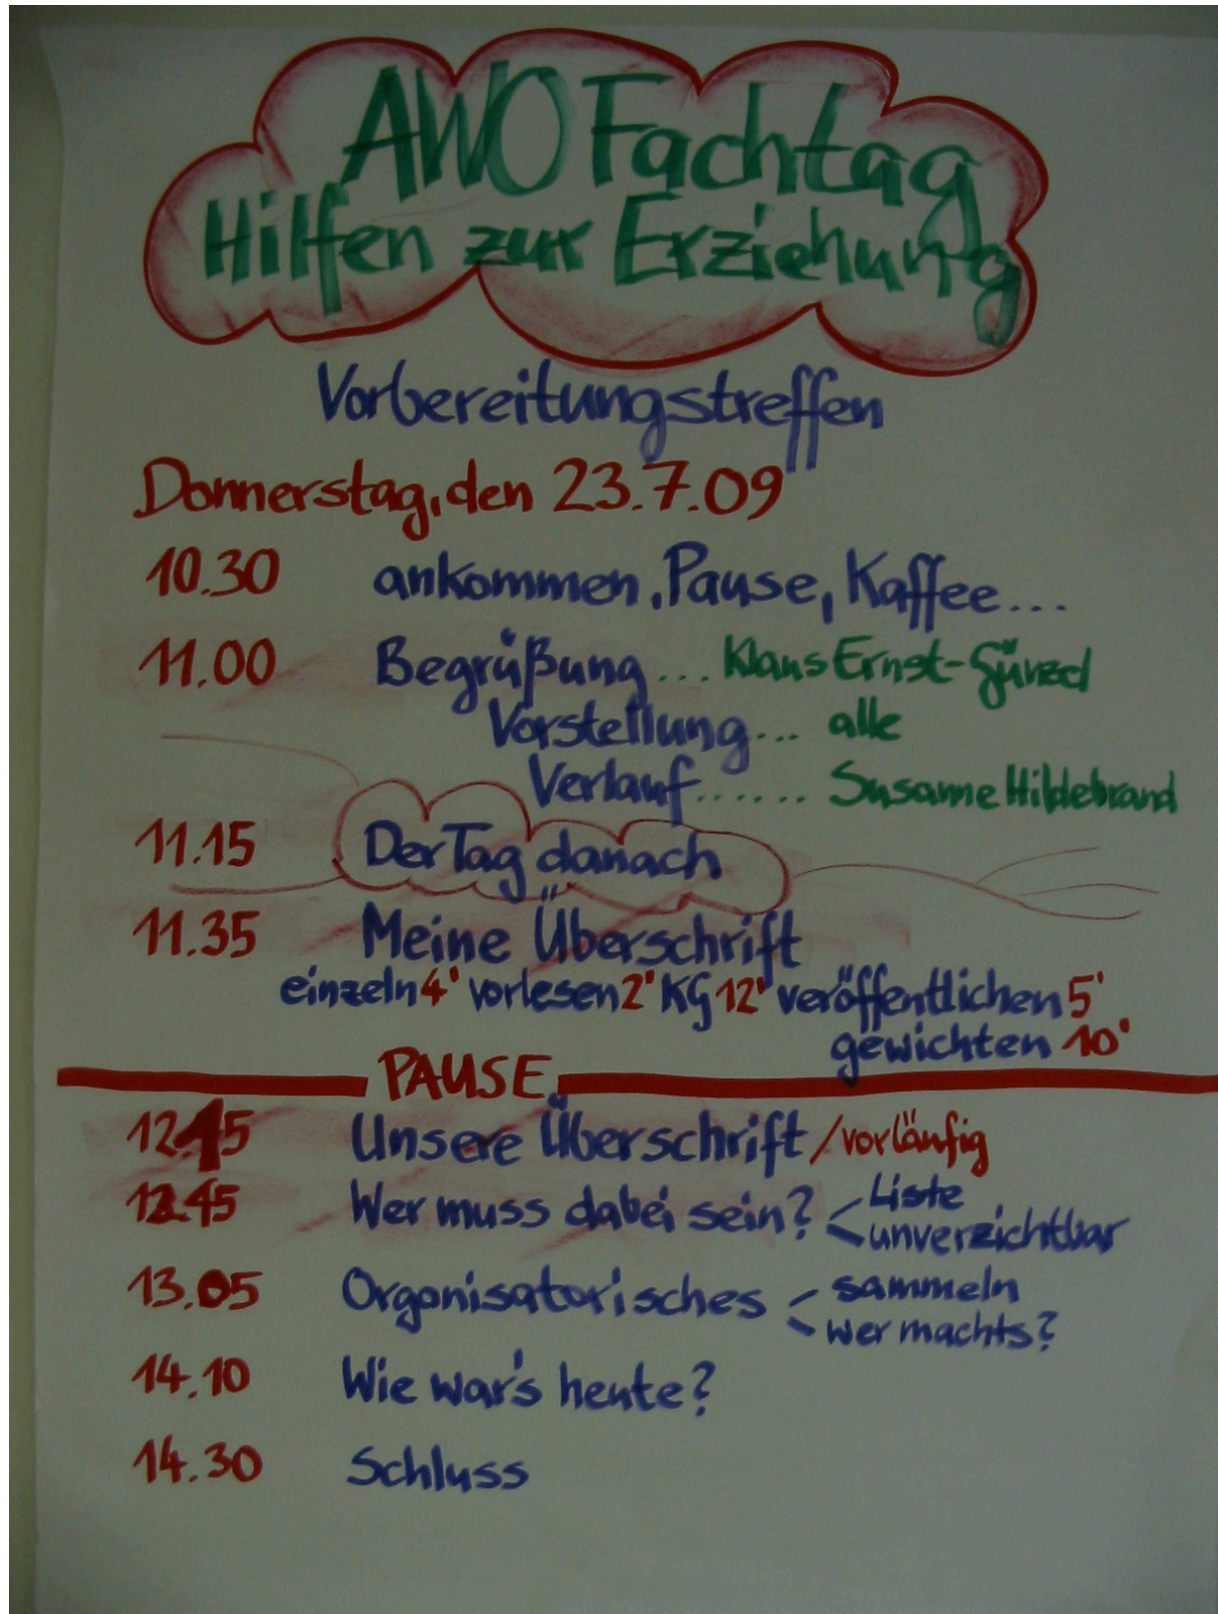 AWO Fachtag
Hilfen zur Erziehung
Vorbereitungstreffen
Donnerstag, den 23.7.09
10.30 ankommen, Pause, Kaffee....
11.00 Begrüßung ... Klaus Ernst-
Vorstellung ... alle
Verlauf ...... Susanne Hildebrand
11.15 Der Tag danach
11.35 Meine Überschrift
einzeln 4' vorlesen 2' KG 12' veröffentlichen 5'
gewichten 10'
PAUSE
12.15 Unsere Überschrift / vorläufig
12.45 Wer muss dabei sein? < Liste
unverzichtbar
13.05 Organisatorisches < sammeln
wer machts?
14.10 Wie war's heute?
14.30 Schluss